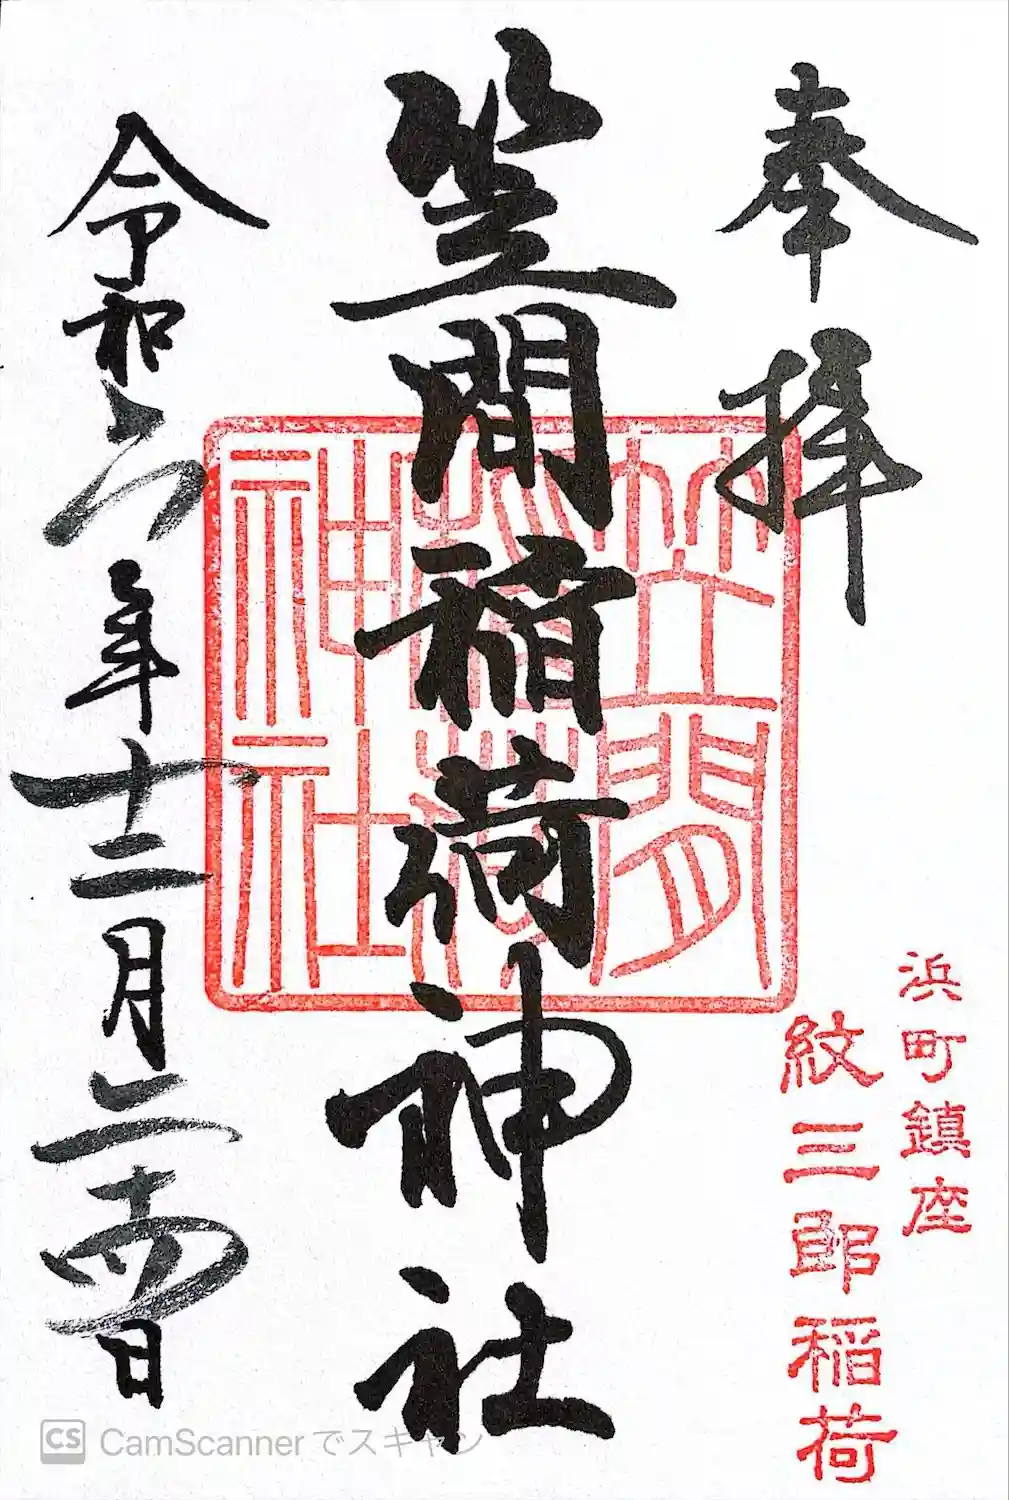 奉拝
浜町鎮座
紋三郎稲荷
笠間稲荷神社
笠間
稲荷
神社
令和六年十二月二十四日
CS CamScannerでスキャン